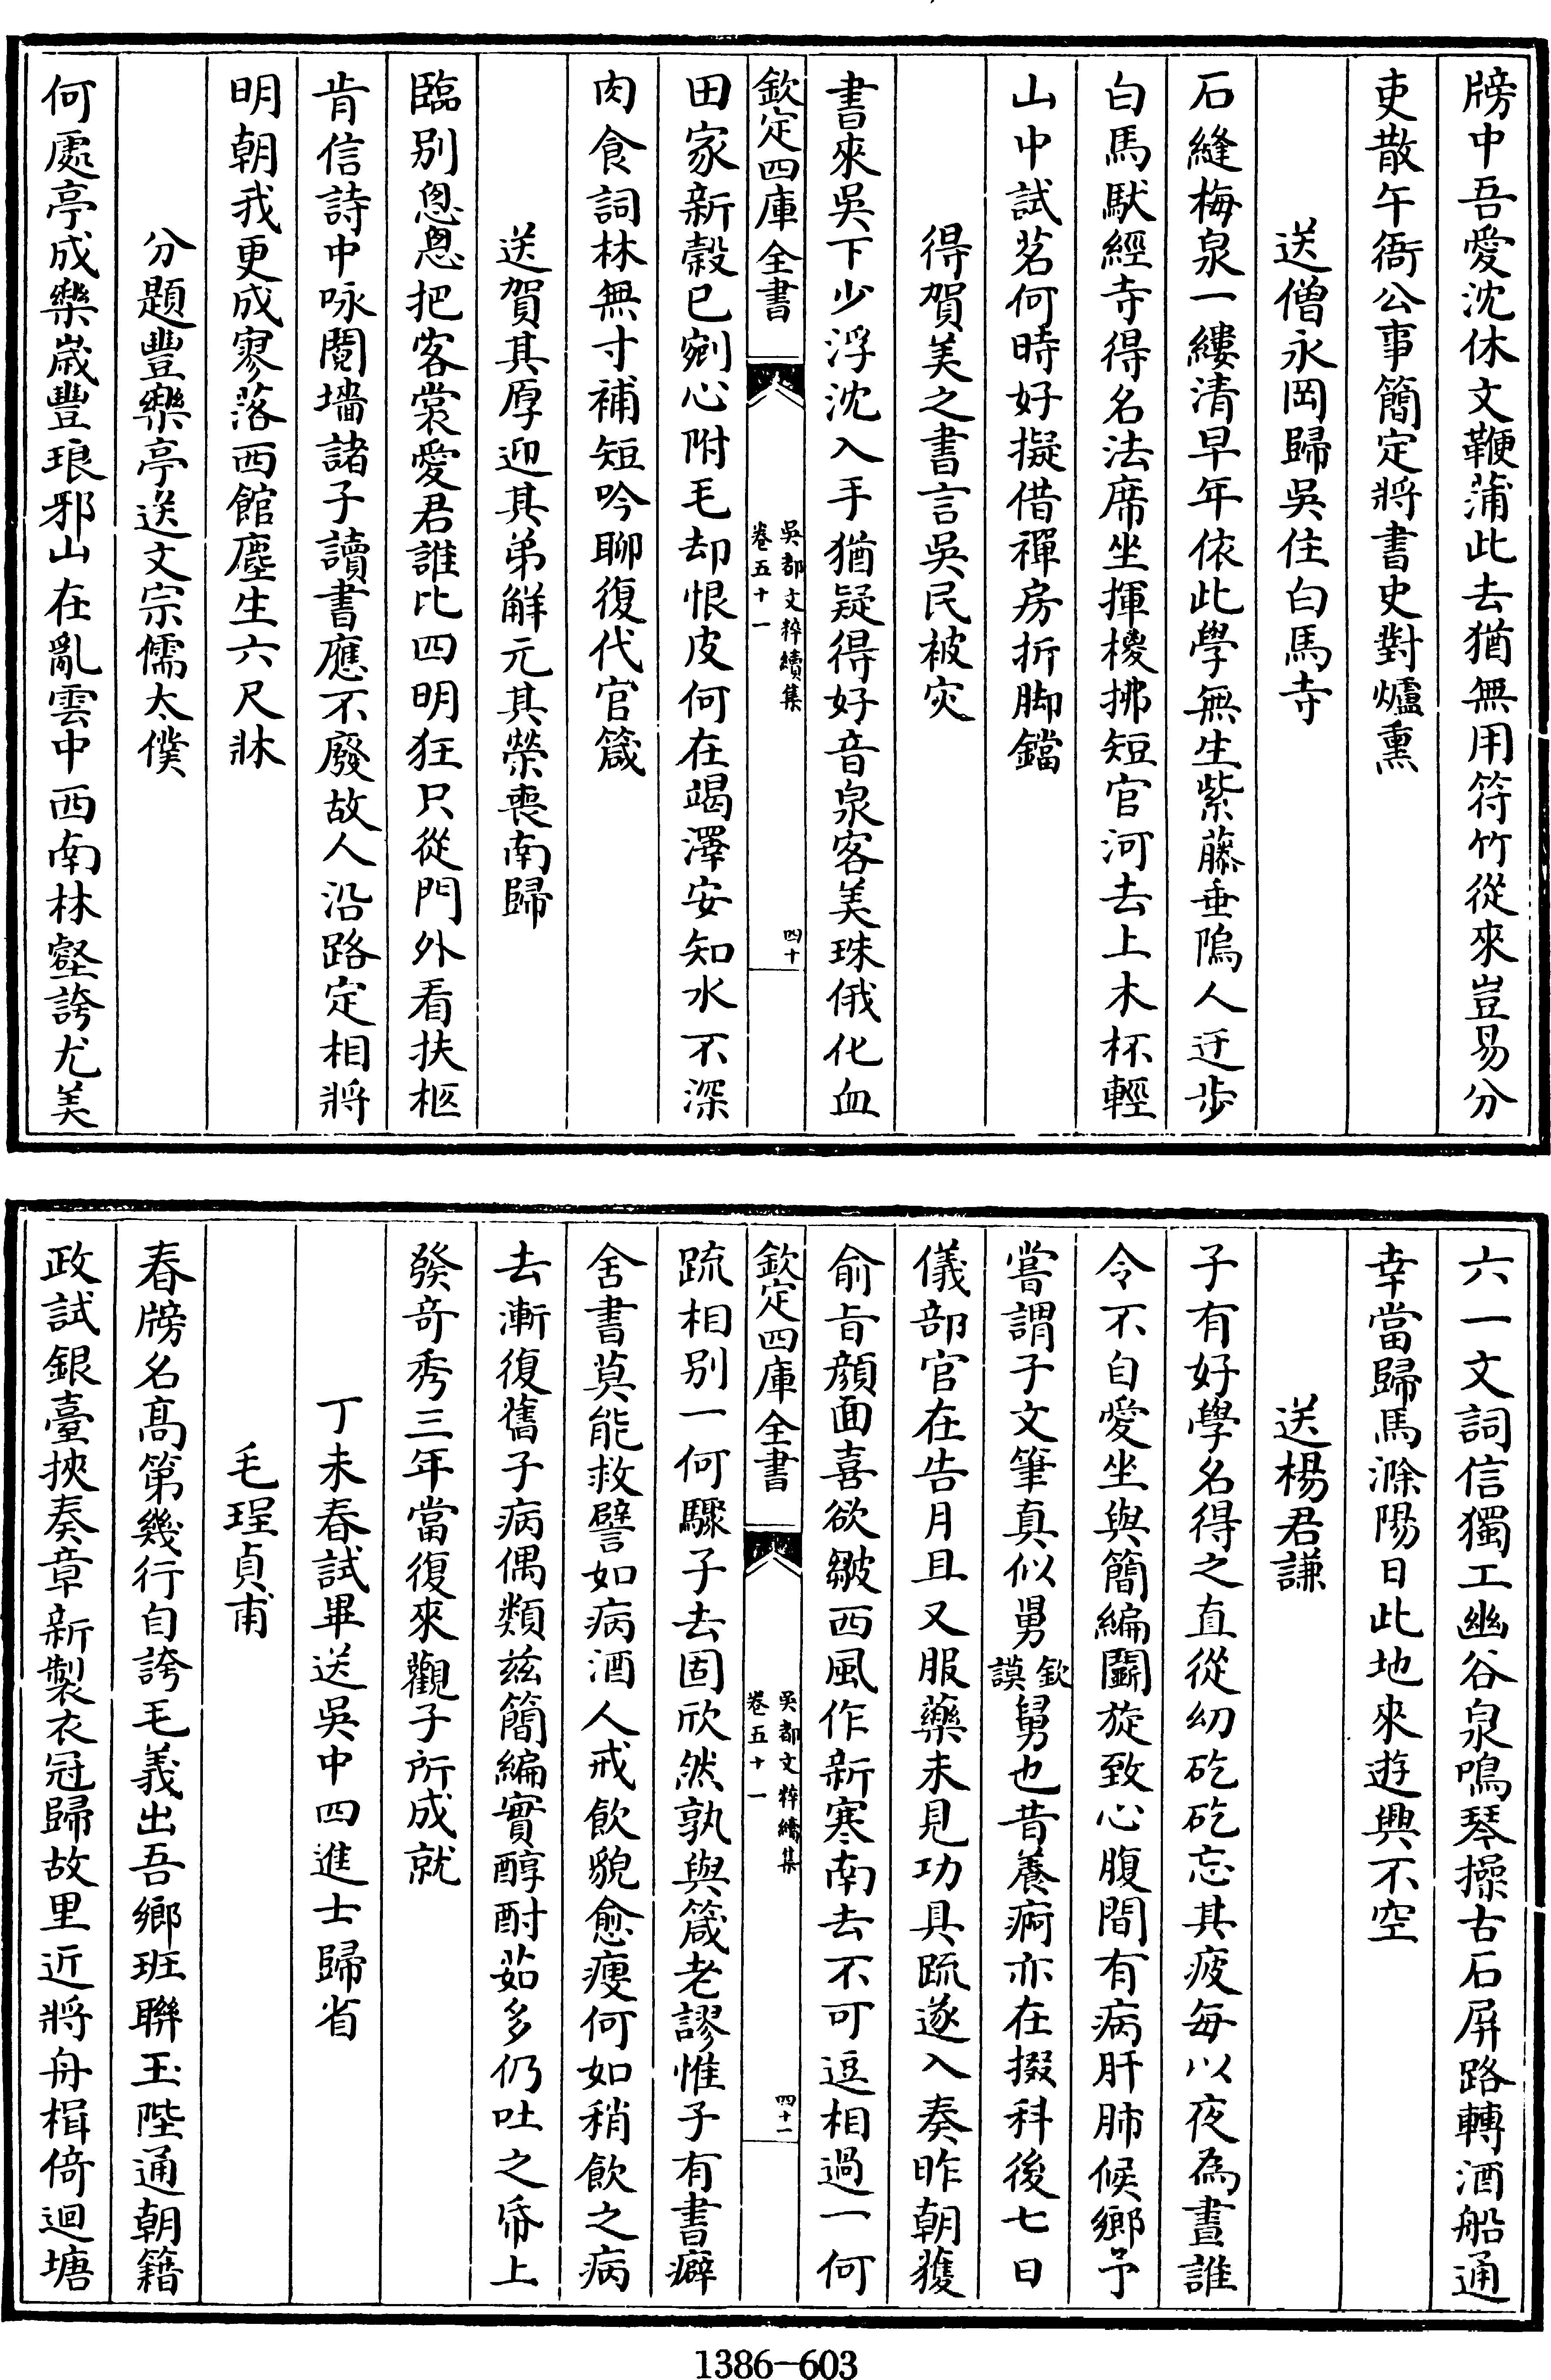 牓中吾愛沈休文鞭蒲此去猶無用符竹從來豈易分
吏散午衙公事簡定將書史對爐熏
送僧永岡歸吳住白馬寺
石縫梅泉一縷清早年依此學無生紫藤垂隖人迂步
白馬馱經寺得名法席坐揮椶拂短官河去上木杯輕
山中試茗何時好擬借禪房折脚鐺
得賀美之書言吳民被灾
書來吳下少浮沈入手猶疑得好音泉客美珠俄化血
欽定四庫全書
吳都文粹續集
卷五十一
四十
田家新榖已剜心附毛却恨皮何在竭澤安知水不深
肉食詞林無寸補短吟聊復代官箴
送賀其厚迎其弟解元其榮喪南歸
臨别恩恩把客裳愛君誰比四明狂只從門外看扶柩
肯信詩中咏鬩墻諸子讀書應不廢故人沿路定相將
明朝我更成寥落西館塵生六尺牀
分題豐樂亭送文宗儒太僕
何處亭成樂嵗豐琅邪山在亂雲中西南林壑誇尤美
六一文詞信獨工幽谷泉鳴琴操古石屏路轉酒船通
幸當歸馬滁陽日此地來遊興不空
送楊君謙
子有好學名得之直從幼矻矻忘其疲每以夜為晝誰
令不自愛坐與簡編鬭旋致心腹間有病肝肺候鄉予
嘗謂子文筆真似舅欽謨舅也昔養痾亦在掇科後七日
儀部官在告月且又服藥未見功具疏遂入奏昨朝獲
俞旨顔面喜欲皺西風作新寒南去不可逗相過一何
欽定四庫全書
吳都文粹續集
卷五十一
四十一
疏相别一何驟子去固欣然孰與箴老謬惟子有書癖
舍書莫能救譬如病酒人戒飲貌愈瘦何如稍飲之病
去漸復舊子病偶類兹簡編實醇酎茹多仍吐之帋上
發奇秀三年當復來觀子所成就
丁未春試畢送吳中四進士歸省
毛珵貞甫
春牓名髙第幾行自誇毛義出吾鄉班聯玉陛通朝籍
政試銀臺挾奏章新製衣冠歸故里近將舟楫倚迴塘
1386—603